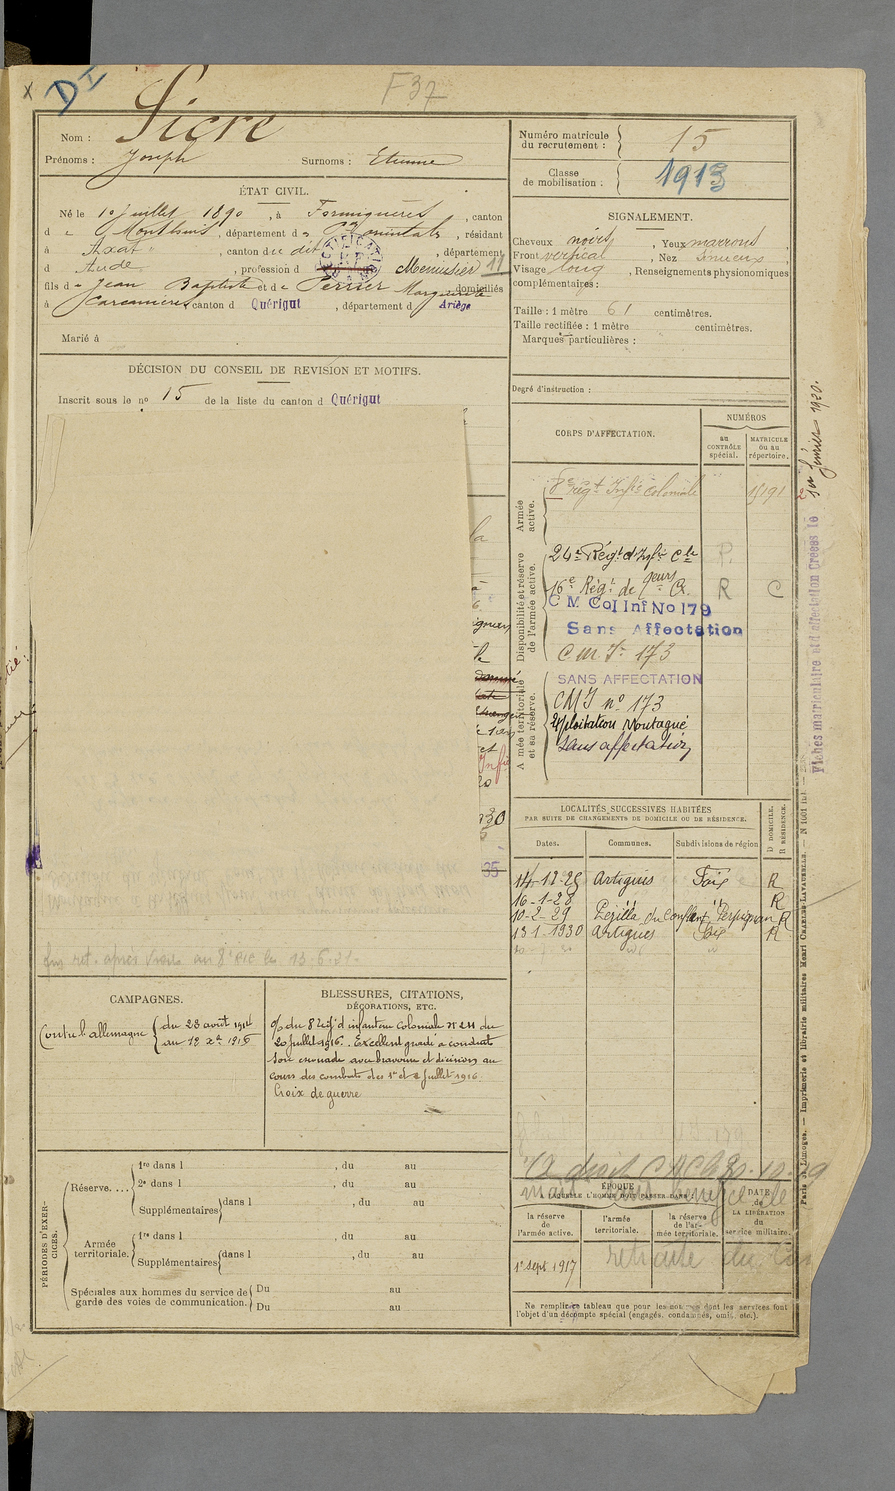 x D I
F 37
Nom : Sicre
Prénoms : Joseph Surnoms : Etienne
ÉTAT CIVIL.
Né le 10 Juillet 1890, à Formiguères, canton
d e Montlouis, département d es P. Orientales, résidant
à Axat, canton du dit, département
d Aude, profession d Menuisier 11
fils d e Jean Baptiste et d e Ferrier Marguerite domiciliés
à Carcanières, canton d Quérigut, département d Ariège
Marié à
DÉCISION DU CONSEIL DE REVISION ET MOTIFS.
Inscrit sous le no 15 de la liste du canton d Quérigut
fus ret. après au 8e RIC
CAMPAGNES.
Contre l'allemagne { du 23 août 1914
au 12 Xe 1916
BLESSURES, CITATIONS,
DÉCORATIONS, ETC.
o/ du 8 rég' d'infanterie Coloniale no 211 du
20 juillet 1916. Excellent gradé a conduit
son escouade avec bravoure et décision au
cours des combats des 1er et 2 Juillet 1916
Croix de guerre
PÉRIODES D'EXERCICES.
Réserve.... 1re dans l , du au
2e dans l , du au
Supplémentaires dans l , du au
Armée territoriale. 1re dans l , du au
Supplémentaires dans l , du au
Spéciales aux hommes du service de Du au
garde des voies de communication. Du au
Numéro matricule
du recrutement : 15
Classe
de mobilisation : 1913
SIGNALEMENT.
Cheveux noirs, Yeux marrons,
Front vertical, Nez Sinueux
Visage long, Renseignements physionomiques
complémentaires :
Taille : 1 mètre 61 centimètres.
Taille rectifiée : 1 mètre centimètres.
Marques particulières :
Degré d'instruction :
CORPS D'AFFECTATION.
NUMÉROS
au CONTRÔLE spécial.
MATRICULE ou au répertoire.
Armée active.
8e rég.t Inf.ie Coloniale
Disponibilité et réserve de l'armée active.
24e Rég.t d'Inf.ie C.le P.
16e Rég.t de R C
C M Col Inf No 179
Sans Affectation
C.M.I. 173
Armée territoriale et sa réserve.
SANS AFFECTATION
CMI no 173
Exploitation Montagné
Sans affectation
LOCALITÉS SUCCESSIVES HABITÉES
PAR SUITE DE CHANGEMENTS DE DOMICILE OU DE RÉSIDENCE.
D DOMICILE. R RÉSIDENCE.
Dates. Communes. Subdivisions de région
14-12-25 Artigues Foix R
16-1-28 " " R
10-2-29 Pézilla du Conflent Perpignan R
13-1-1930 Artigues Foix R
ÉPOQUE
A LAQUELLE L'HOMME DOIT PASSER DANS :
DATE de LA LIBÉRATION du service militaire.
la réserve de l'armée active.
l'armée territoriale.
la réserve de l'armée territoriale.
1er sept 1917
retraite du
Ne remplir ce tableau que pour les hommes dont les services font
l'objet d'un décompte spécial (engagés, condamnés, omis, etc.).
Fiches matriculaire et d'affectation Créées le
1er février 1930.
Paris et Limoges. — Imprimerie et librairie militaires Henri CHARLES-LAVAUZELLE.